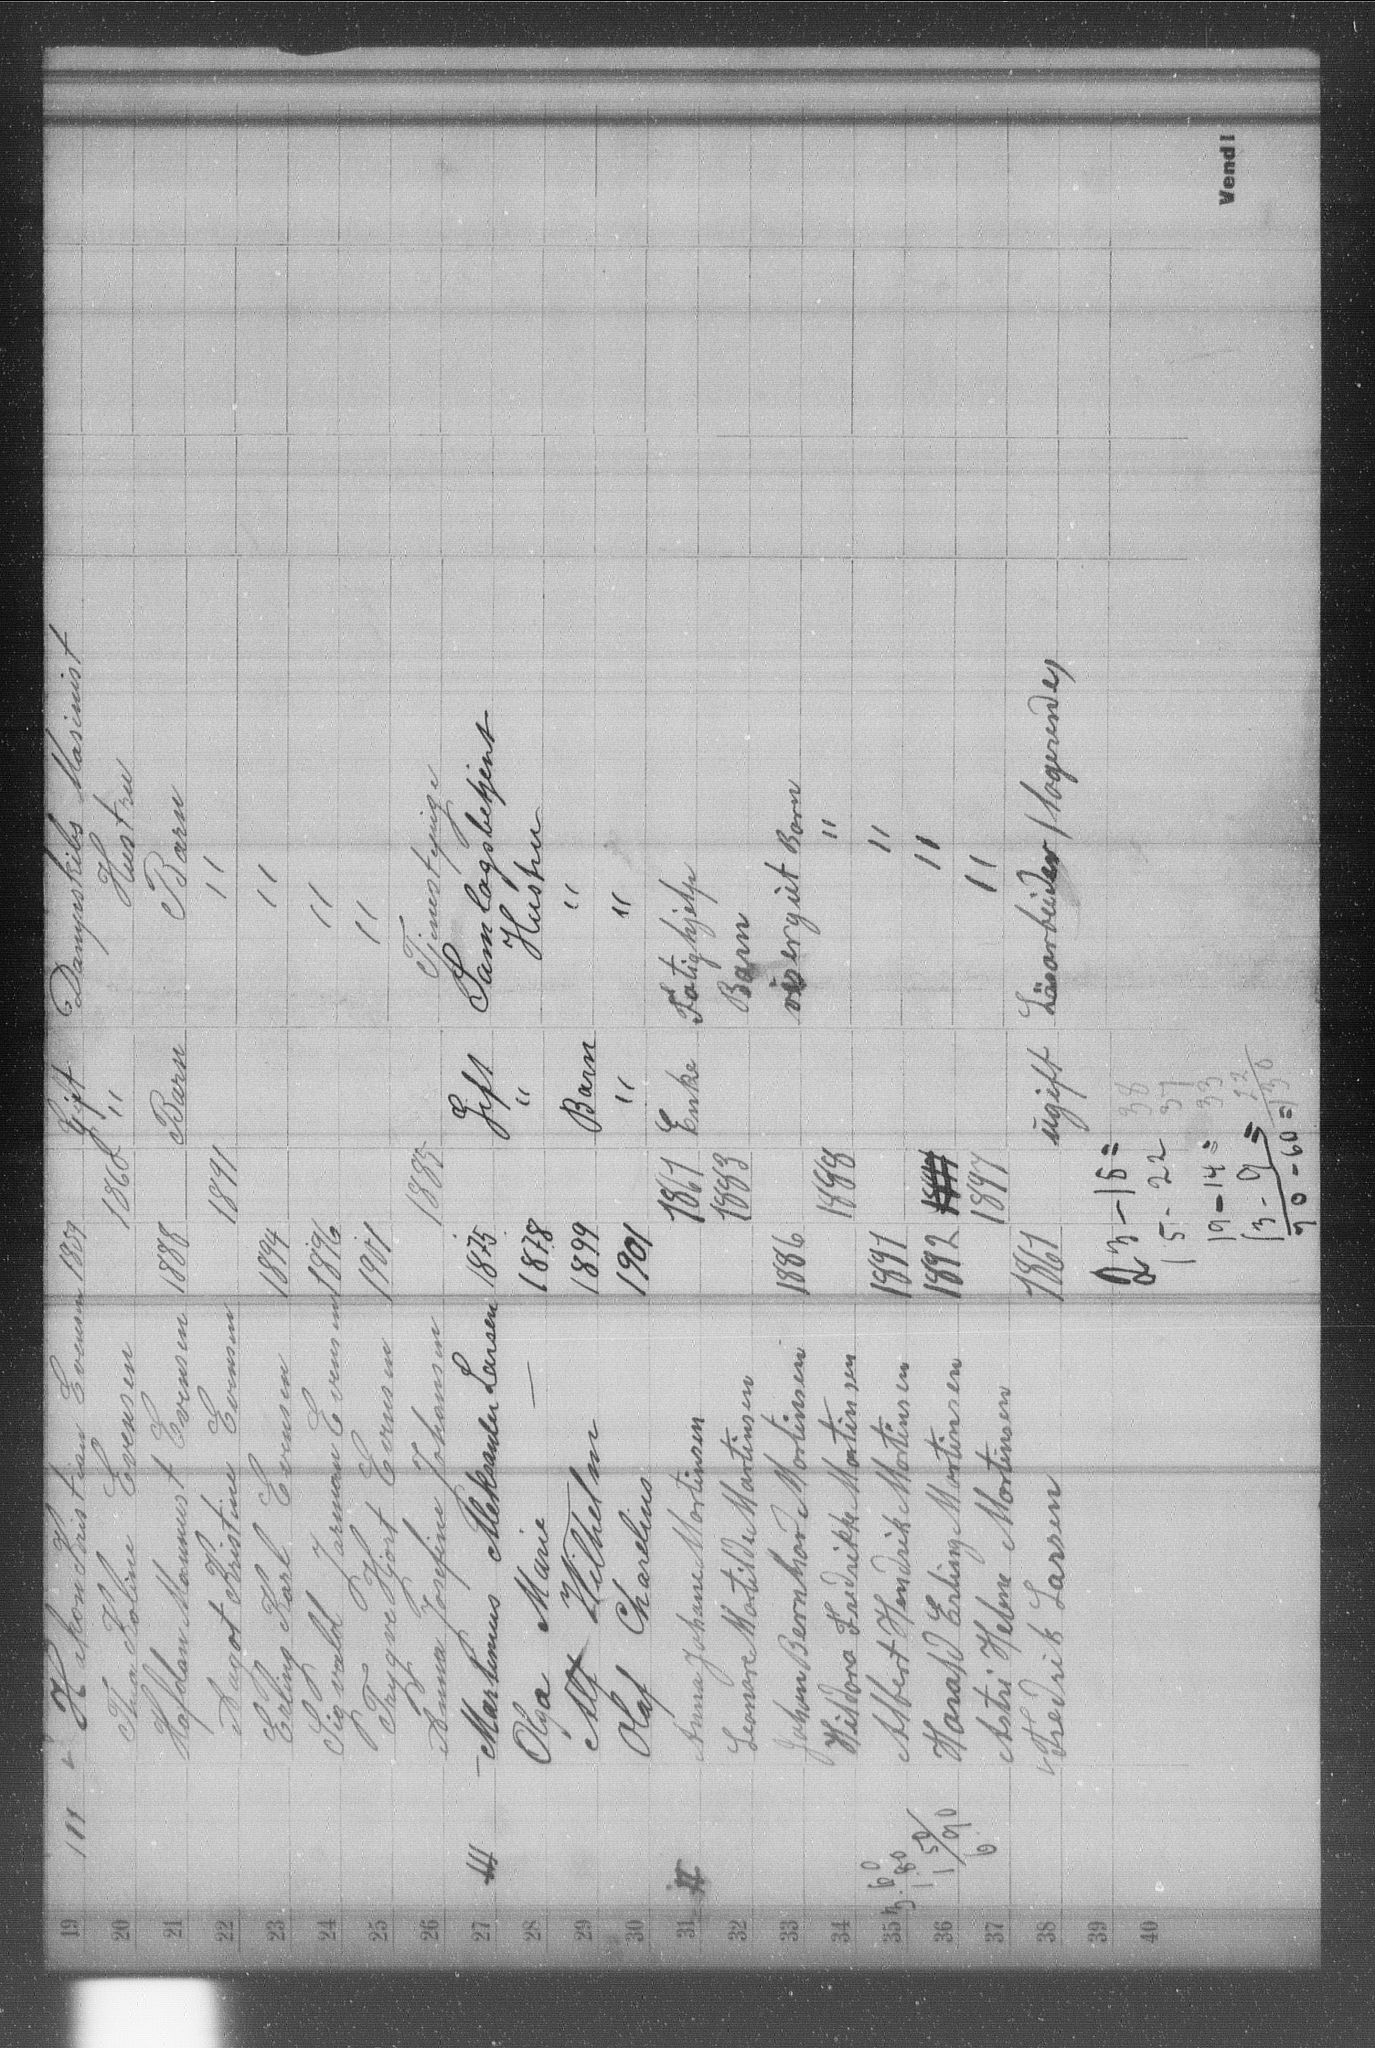 19 III Hakon Kristian Evensen 1859 Gift Dampskibs Masinist
20 Thea Koline Evensen 1868 " Hustru
21 Halfdan Magnus Evensen 1888 Barn Barn
22 Dagot Kristine Evensen 1891 "
23 Erling Karl Evensen 1894 "
24 Sigvald Evensen 1896 "
25 Trygve Hjort Evensen 1901 "
26 Anna Josefine Johansen 1885 Tjenestepige
27 Martinus Aleksander Larsen 1875 Gift Samlagsbetjent
28 Olga Marie — 1878 " Hustru
29 Alf Wilhelm 1899 Barn "
30 Olaf Charelius 1901 " "
31 II Anna Johanne Mortinsen 1861 Enke Fatighjelp
32 Leonore Matilde Martinsen 1883 Barn
33 Johan Bernhard Mortinsen 1886 visergut Barn
34 Hildora Fredrikke Martinsen 1888 "
35 Albert Hendrik Mortinsen 1891 "
36 Harald Erling Martinsen 1892 "
37 Astri Helene Mortinsen 1897 "
38 Fredrik Larsen 1861 ugift Løsarbeider / logerende /
39
40
3.60
1.80
1 50
6.90
23 - 15 = 38
15 - 22 37
19 - 14 = 33
13 - 9 = 22
70 - 60 = 130
Vend!